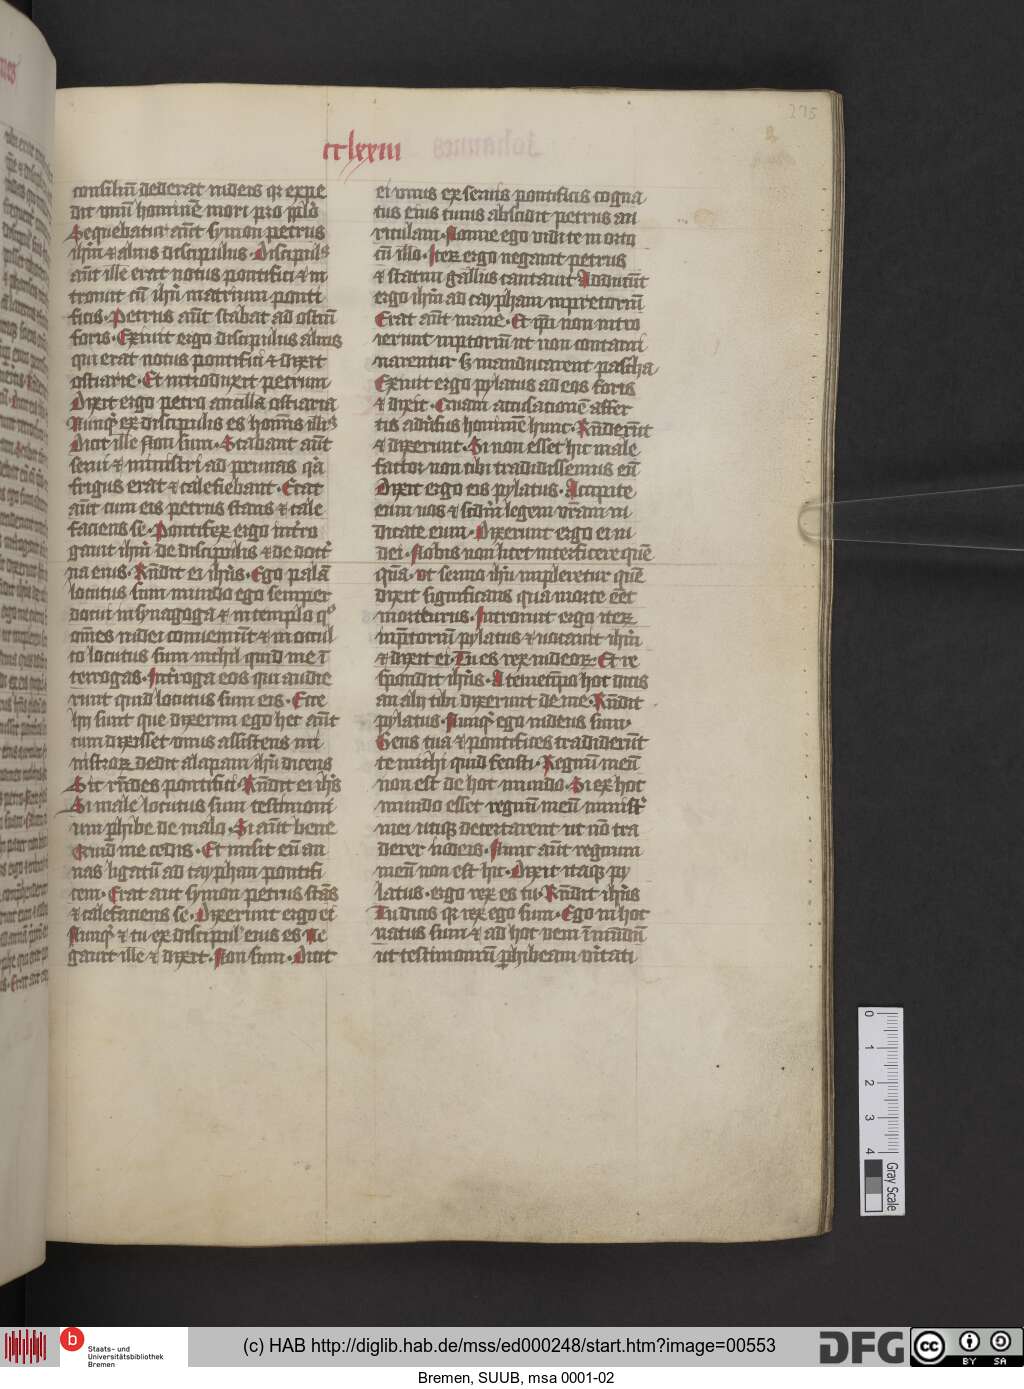 275
cclxxiii
consiliū dederat iudeis qr expe
dit vnū hominē mori pro pplō
Sequebatur aūt symon petrus
ihm̄ ⁊ alius discipulus. Discipulꝰ
aūt ille erat notus pontifici ⁊ in
troiuit cū ihū in atrium ponti
ficis. Petrus aūt stabat ad ostiū
foris. Exiuit ergo discipulus alius
qui erat notus pontifici ⁊ dixit
ostiarie. Et introduxit petrum
Dixit ergo petro ancilla ostiaria
Nunqͥ ex discipulis es hoīnis illiꝰ
Dicit ille Non sum. Stabant aūt
serui ⁊ ministri ad prunas qͥa
frigus erat ⁊ calefiebant. Erat
aūt cum eis petrus stans ⁊ cale
faciens se. Pontifex ergo intro
gauit ihm̄ de discipulis ⁊ de doctͥ
na eius. Rn̄dit ei ihs̄. Ego palā
locutus sum mundo ego semper
docui in synagoga ⁊ in templo qͦ
om̄es iudei conueniūt ⁊ in occul
to locutus sum nichil quid me ī
terrogas. Introga eos qui audie
runt quid locutus sum eis. Ecce
hij sunt que dixerim ego hec aūt
cum dixisset vnus assistens mi
nistroꝝ dedit alapam ihū dicens
Sic rn̄des pontifici. Rn̄dit ei ihs̄
Si male locutus sum testimoni
um phibe de malo. Si aūt bene
Quid me cedis. Et misit eū an
nas ligatū ad cayphan pontifi
cem. Erat aut symon petrus stās
⁊ calefaciens se. Dixerunt ergo ei
Nunqͥ ⁊ tu ex discipul' eius es Ne
gauit ille ⁊ dixit. Non sum. Dicit
ei vnus ex seruis pontificis cogna
tus eius cuius abscidit petrus au
riculam. Nonne ego vidi te in orto
cū illo. Iteꝝ ergo negauit petrus
⁊ statim gallus cantauit Adducūt
ergo ihm̄ ad caypham in pretoriū
Erat aūt mane. Et ip̄i non intro
ierunt in p̄toriū ut non contami
narentur sꝫ manducarent pascha
Exiuit ergo pylatus ad eos foris
⁊ dixit. Quam accusationē affer
tis aduͥsus hominē hunc. Rn̄derūt
⁊ dixerunt. Si non esset hic male
factor non tibi tradidissemus eū
Dixit ergo eis pylatus. Accipite
eum vos ⁊ scdm̄ legem vr̄am iu
dicate eum. Dixerunt ergo ei iu
dei. Nobis non licet interficere quē
qūa. Vt sermo ihū impleretur quē
dixit significans qua morte eēt
moriturus. Introiuit ergo iteꝝ
in p̄toriū pylatus ⁊ uocauit ihm̄
⁊ dixit ei. Tu es rex iudeoꝝ. Et re
spondit ihs̄. A temetip̄o hoc dicis
an alij tibi dixerunt de me. Rn̄dit
pylatus. Nunqͥ ego iudeus sum.
Gens tua ⁊ pontifices tradiderūt
te michi quid fecisti. Regnū meū
non est de hoc mundo. Si ex hoc
mundo esset regnū meū ministͥ
mei utiqꝫ decertarent ut nō tra
derer iudeis. Nunc aūt regnum
meū non est hic. Dixit itaqꝫ py
latus. ergo rex es tu. Rn̄dit ihs̄
Tu dicis qr rex ego sum. Ego in hoc
natus sum ⁊ ad hoc veni ī mūdū
ut testimoniū phibeam vͥitati
0 1 2 3 4
Gray Scale
Staats- und
Universitätsbibliothek
Bremen
(c) HAB http://diglib.hab.de/mss/ed000248/start.htm?image=00553
DFG
cc BY SA
Bremen, SUUB, msa 0001-02